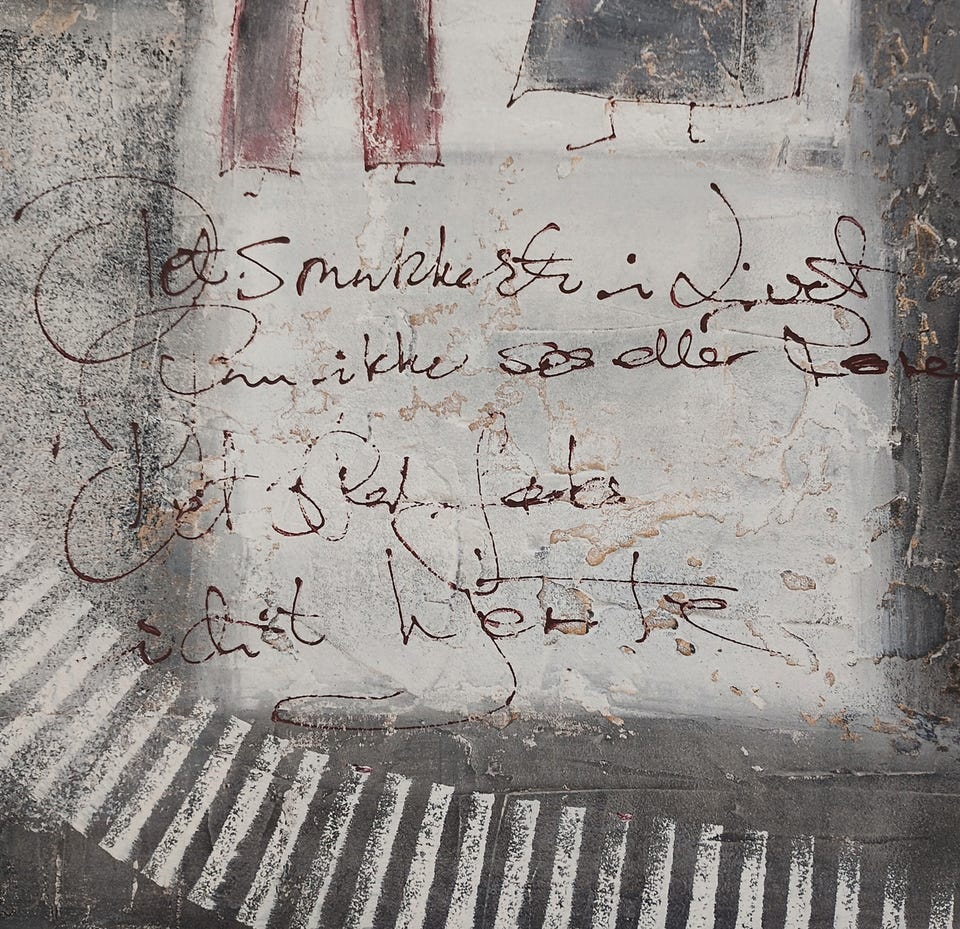 Det smukkeste i livet
kan ikke ses eller røres
Det skal føles
i dit hjerte